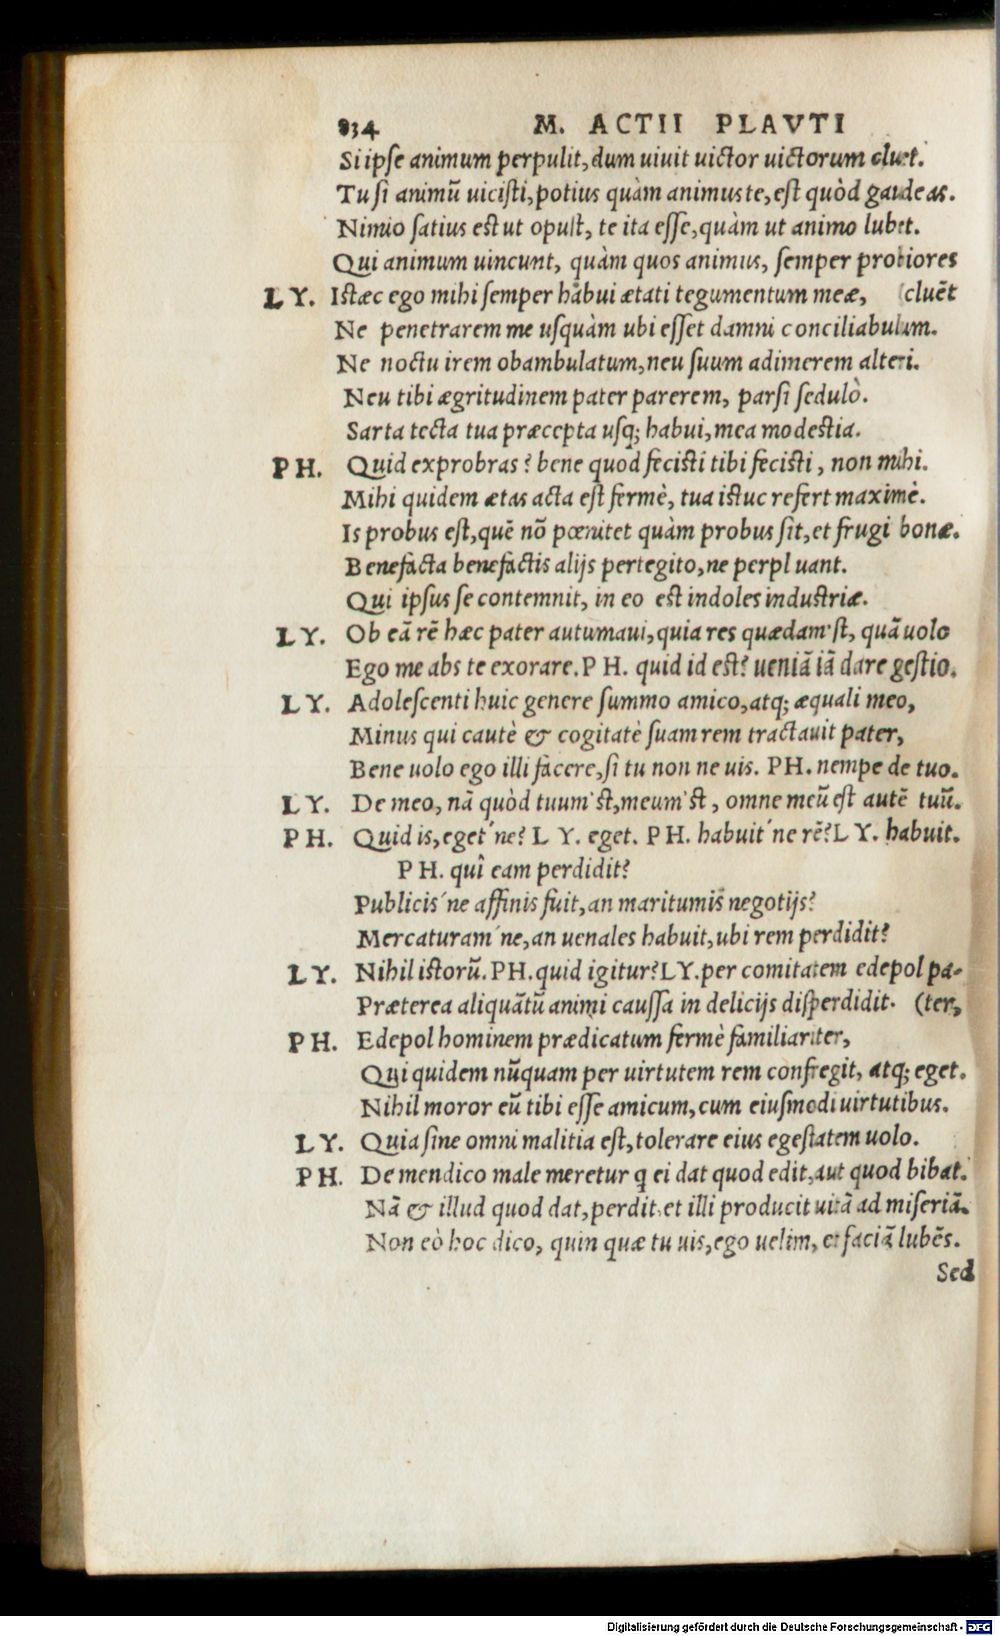 934 M. ACTII PLAVTI
Si ipse animum perpulit, dum uiuit uictor uictorum cluet.
Tu si animū uicisti, potius quàm animus te, est quòd gaudeas.
Nimio satius est ut opust, te ita esse, quàm ut animo lubet.
Qui animum uincunt, quàm quos animus, semper probiores
LY. Istæc ego mihi semper habui ætati tegumentum meæ, (cluēt
Ne penetrarem me usquàm ubi esset damni conciliabulum.
Ne noctu irem obambulatum, neu suum adimerem alteri.
Neu tibi ægritudinem pater parerem, parsi sedulò.
Sarta tecta tua præcepta usq; habui, mea modestia.
PH. Quid exprobras? bene quod fecisti tibi fecisti, non mihi.
Mihi quidem ætas acta est fermè, tua istuc refert maximè.
Is probus est, quē nō pœnitet quàm probus sit, et frugi bonæ.
Benefacta benefactis alijs pertegito, ne perpluant.
Qui ipsus se contemnit, in eo est indoles industriæ.
LY. Ob eā rē hæc pater autumaui, quia res quædam'st, quā uolo
Ego me abs te exorare. PH. quid id est? ueniā iā dare gestio.
LY. Adolescenti huic genere summo amico, atq; æquali meo,
Minus qui cautè & cogitatè suam rem tractauit pater,
Bene uolo ego illi facere, si tu non ne uis. PH. nempe de tuo.
LY. De meo, nā quòd tuum'st, meum'st, omne meū est autē tuū.
PH. Quid is, eget'ne? LY. eget. PH. habuit'ne rē? LY. habuit.
PH. quî eam perdidit?
Publicis'ne affinis fuit, an maritumis negotijs?
Mercaturam'ne, an uenales habuit, ubi rem perdidit?
LY. Nihil istorū. PH. quid igitur? LY. per comitatem edepol pa-
Præterea aliquātū animi caussa in delicijs disperdidit. (ter,
PH. Edepol hominem prædicatum fermè familiariter,
Qui quidem nūquam per uirtutem rem confregit, atq; eget.
Nihil moror eū tibi esse amicum, cum eiusmodi uirtutibus.
LY. Quia sine omni malitia est, tolerare eius egestatem uolo.
PH. De mendico male meretur q ei dat quod edit, aut quod bibat.
Nā & illud quod dat, perdit, et illi producit uitā ad miseriā.
Non eò hoc dico, quin quæ tu uis, ego uelim, et faciā lubēs.
Sed
Digitalisierung gefördert durch die Deutsche Forschungsgemeinschaft - DFG